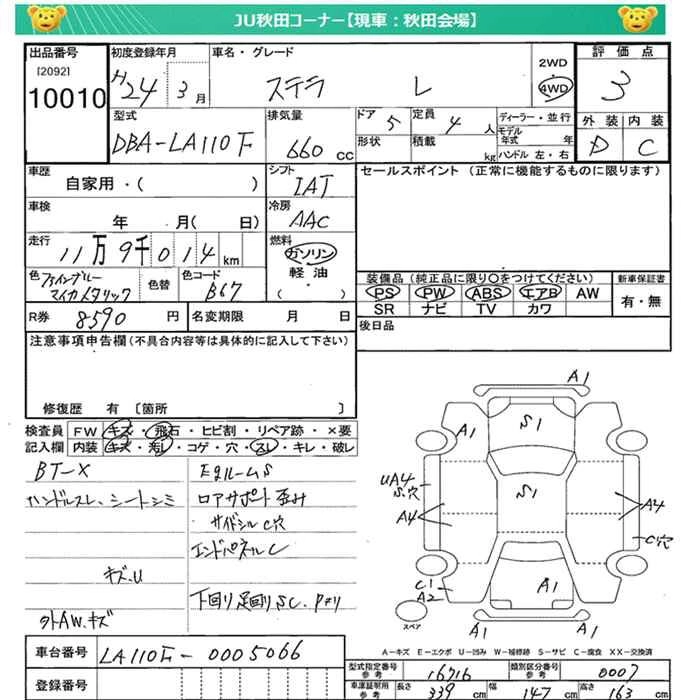 JU秋田コーナー【現車：秋田会場】
出品番号 [2092] 10010
初度登録年月 H24 3月
車名・グレード ステラ L
2WD 4WD
評価点 3
型式 DBA-LA110F
排気量 660 cc
ドア 5 定員 4 人
形状 積載 kg
ディーラー・並行
モデル年式 年
ハンドル 左・右
外装 内装
D C
車歴 自家用・( )
シフト IAT
セールスポイント（正常に機能するものに限ります）
車検 年 月( 日)
冷房 AAC
走行 11万9千014 km
燃料 ガソリン 軽油 ( ・ )
色 ファインブルーマイカメタリック 色替 色コード B67
装備品（純正品に限り○をつけてください） 新車保証書
PS PW ABS エアB AW 有・無
SR ナビ TV カワ
R券 8590 円 名変期限 月 日
後日品
注意事項申告欄（不具合内容等は具体的に記入して下さい）
修復歴 有 〔箇所 〕
検査員 FW キズ・飛石・ヒビ割・リペア跡・×要
記入欄 内装 キズ・汚レ・コゲ・穴・スレ・キレ・破レ
BT-X
ハンドルスレ、シートシミ
キズ.U
外AW.キズ
EgルームS
ロアサポート歪み
サイドシルC穴
エンドパネルC
下回り足回りSC.
A1
S1
A1
UA4
S.穴
S1
A4
A4
C穴
C1
A2
A1
スペア
A1
A1
A－キズ E－エクボ U－凹み W－補修跡 S－サビ C－腐食 XX－交換済
車台番号 LA110F-0005066
登録番号
型式指定番号 参考 16716 類別区分番号 参考 0007
車庫証明用 参考 長さ 339 cm 幅 147 cm 高さ 163 cm